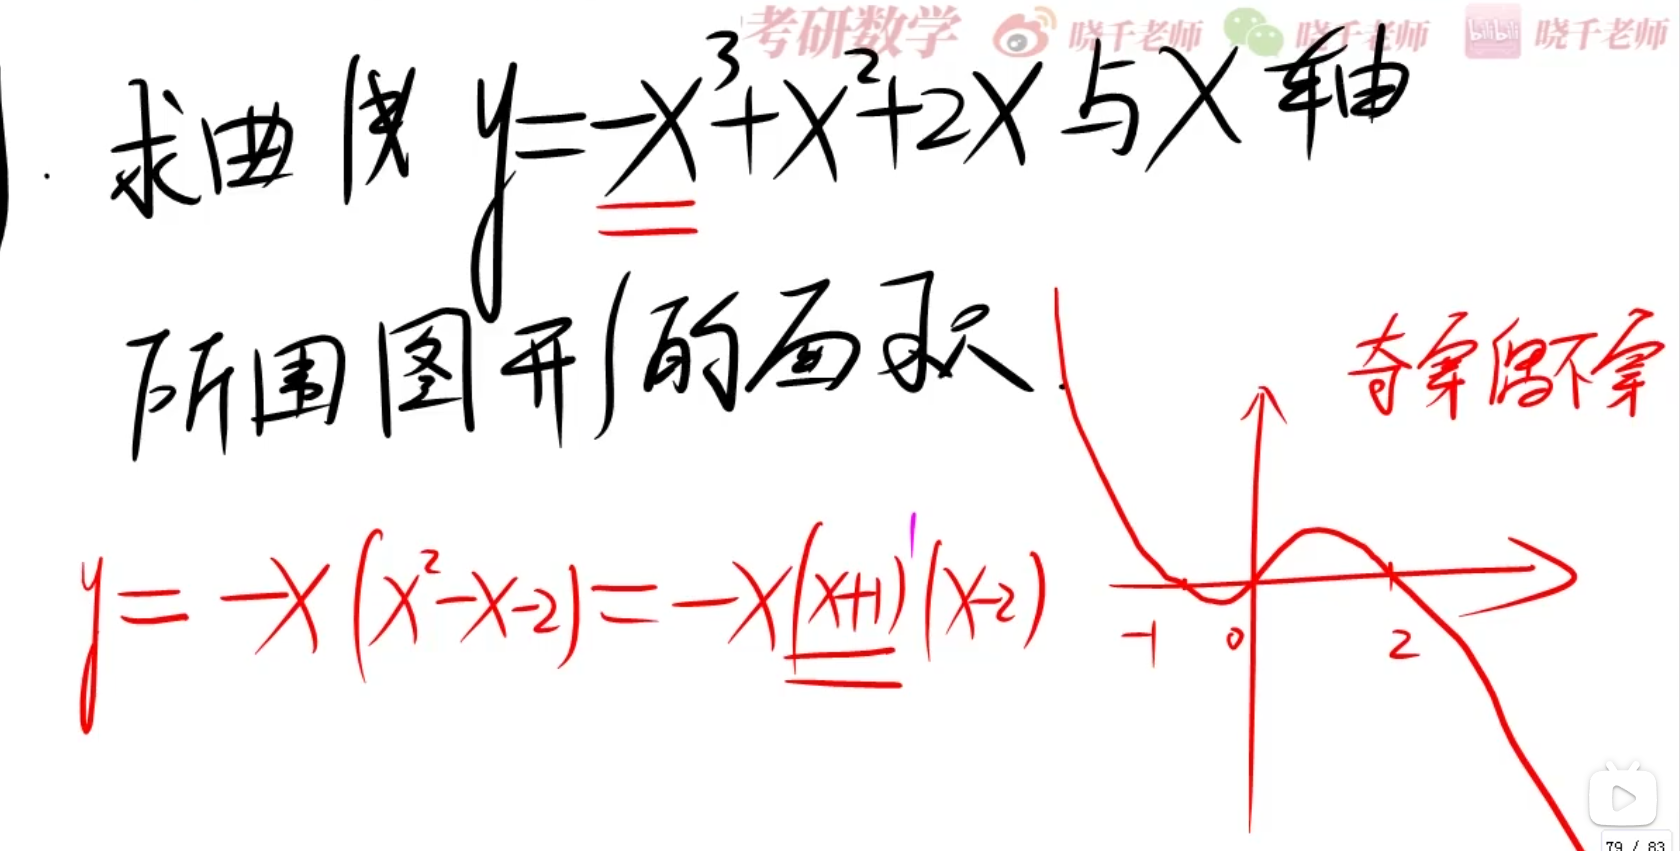 考研数学 晓千老师 晓千老师 bilibili 晓千老师
. 求曲线 y=-x³+x²+2x 与 x 轴
所围图形的面积.
奇穿偶不穿
y = -x(x²-x-2) = -x(x+1)¹(x-2)
-1 0 2
79 / 83